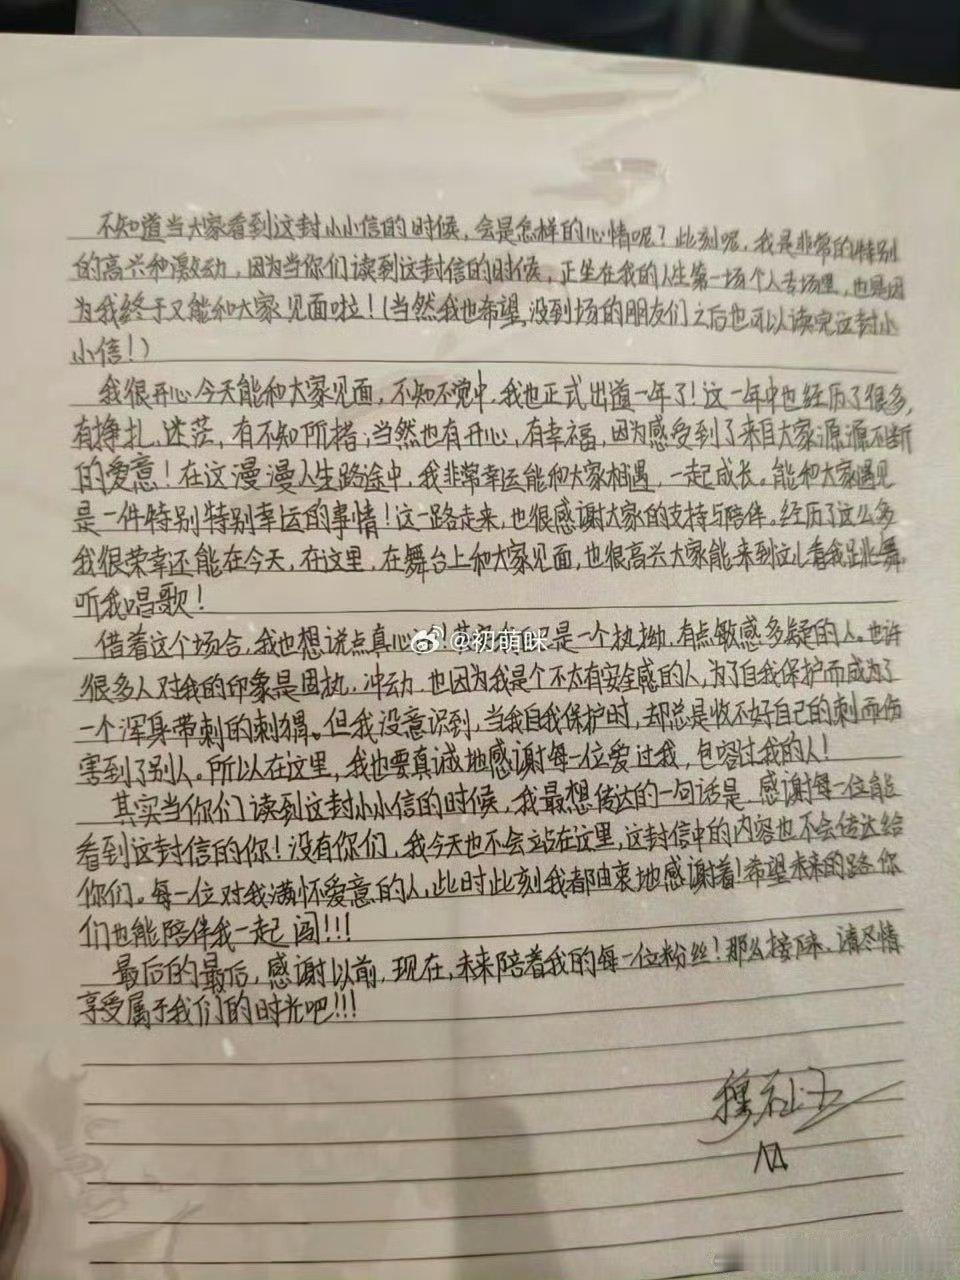 不知道当大家看到这封小小信的时候，会是怎样的心情呢？此刻呢，我是非常的特别
的高兴和激动，因为当你们读到这封信的时候，正坐在我的人生第一场个人专场里，也是因
为我终于又能和大家见面啦！(当然我也希望，没到场的朋友们之后也可以读完这封小
小信！)
我很开心今天能和大家见面，不知不觉中，我也正式出道一年了！这一年中也经历了很多，
有挣扎、迷茫，有不知所措；当然也有开心，有幸福，因为感受到了来自大家源源不断
的爱意！在这漫漫人生路途中，我非常幸运能和大家相遇，一起成长。能和大家遇见
是一件特别特别幸运的事情！这一路走来，也很感谢大家的支持与陪伴。经历了这么多
我很荣幸还能在今天，在这里，在舞台上和大家见面，也很高兴大家能来到这儿看我跳舞
听我唱歌！
借着这个场合，我也想说点真心 是一个执拗，有点敏感多疑的人。也许
@初萌咪
很多人对我的印象是固执，冲动，也因为我是个不太有安全感的人，为了自我保护而成为了
一个浑身带刺的刺猬。但我没意识到，当我自我保护时，却总是收不好自己的刺而伤
害到了别人。所以在这里，我也要真诚地感谢每一位爱过我，包容过我的人！
其实当你们读到这封小小信的时候，我最想传达的一句话是，感谢每一位能
看到这封信的你！没有你们，我今天也不会站在这里，这封信中的内容也不会传达给
你们。每一位对我满怀爱意的人，此时此刻我都由衷地感谢着！希望未来的路你
们也能陪伴我一起闯！！！
最后的最后，感谢以前，现在，未来陪着我的每一位粉丝！那么接下来，请尽情
享受属于我们的时光吧！！！
穆祉丞